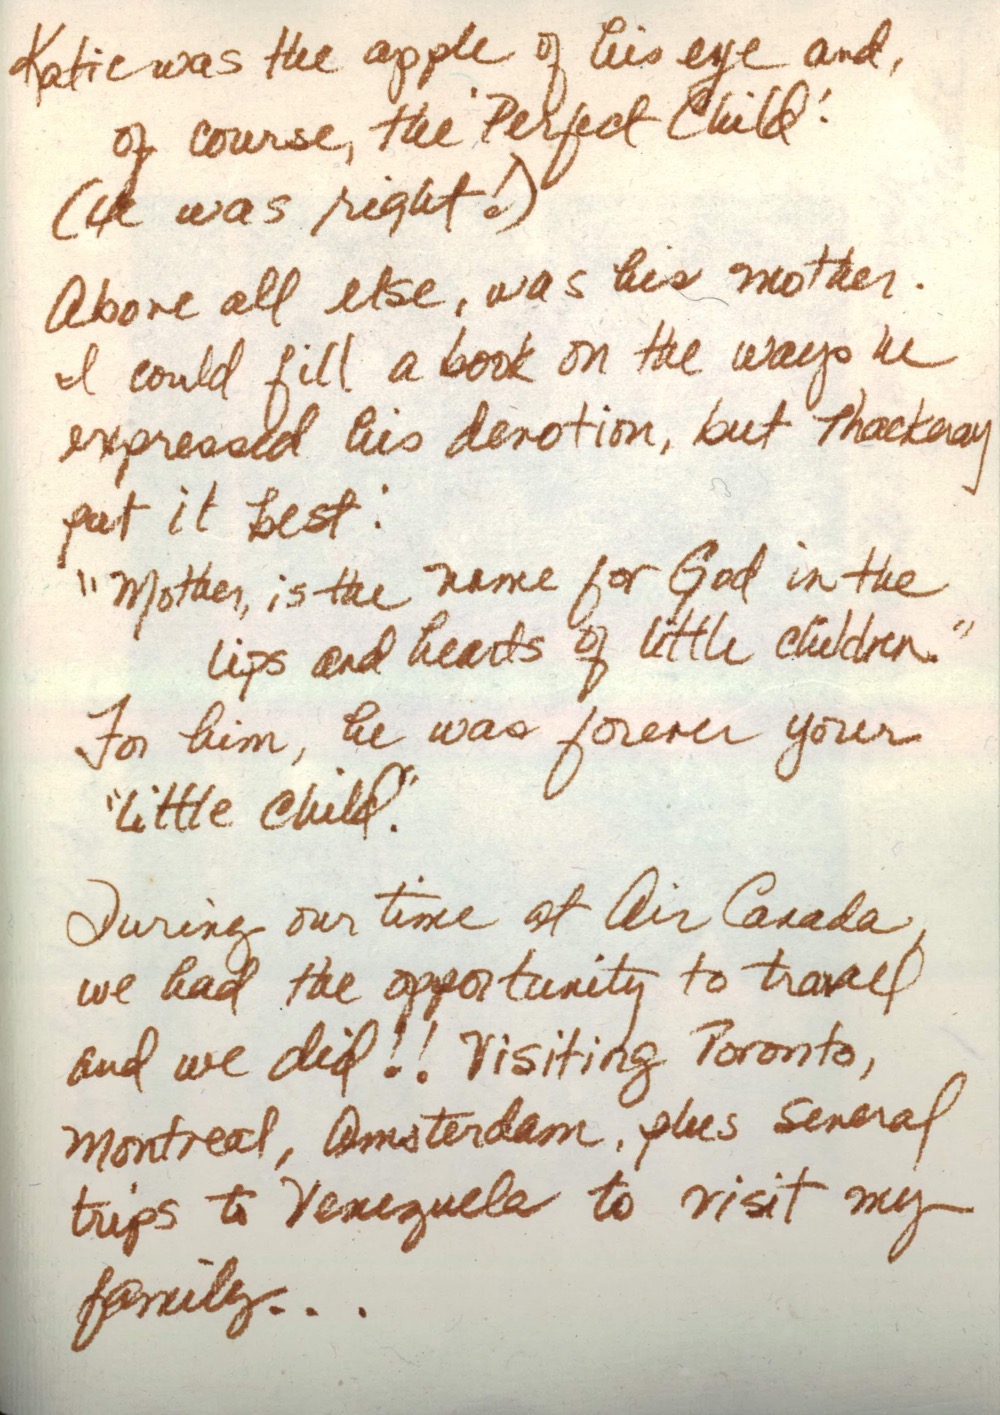 Katie was the apple of his eye and,
of course, the "Perfect Child".
(He was right!)
Above all else, was his mother.
I could fill a book on the ways he
expressed his devotion, but Thackeray
put it best:
"Mother, is the name for God in the
lips and hearts of little children."
For him, he was forever your
"little child."
During our time at Air Canada,
we had the opportunity to travel
and we did!! Visiting Toronto,
Montreal, Amsterdam, plus several
trips to Venezuela to visit my
family...